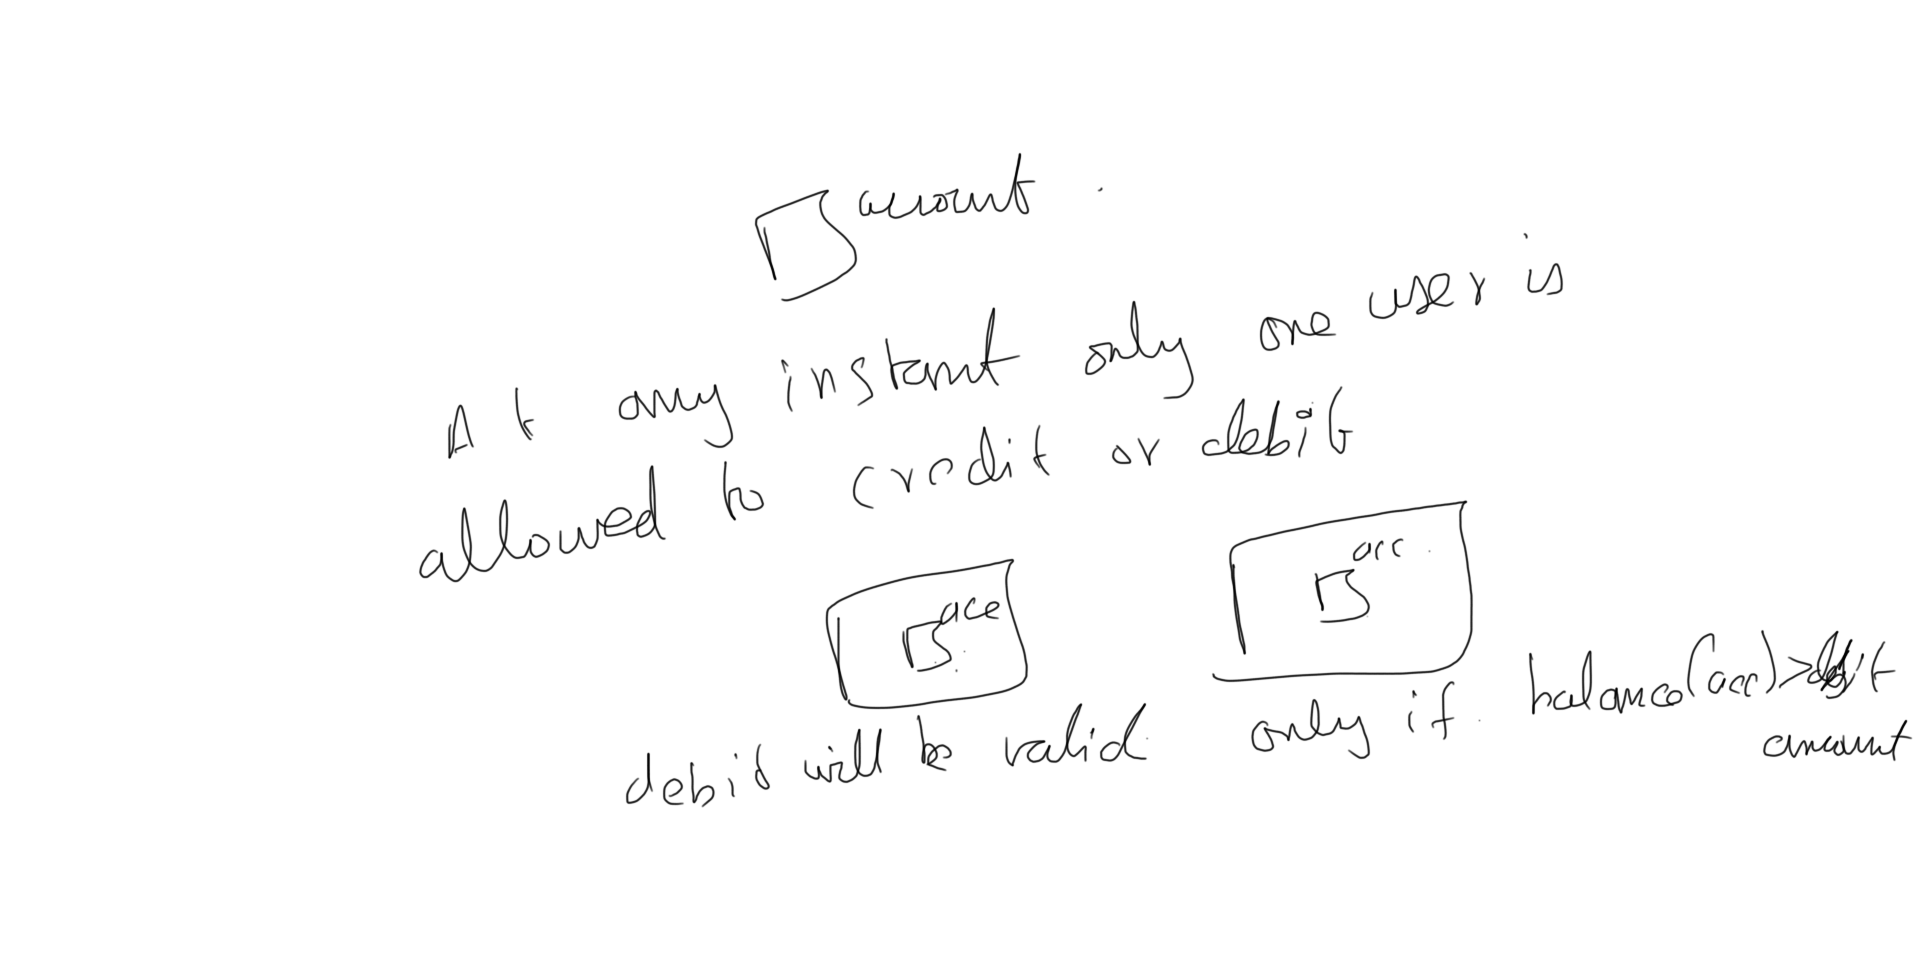 account
At any instant only one user is
allowed to credit or debit
acc
acc
debit will be valid only if balance(acc) > debit
amount